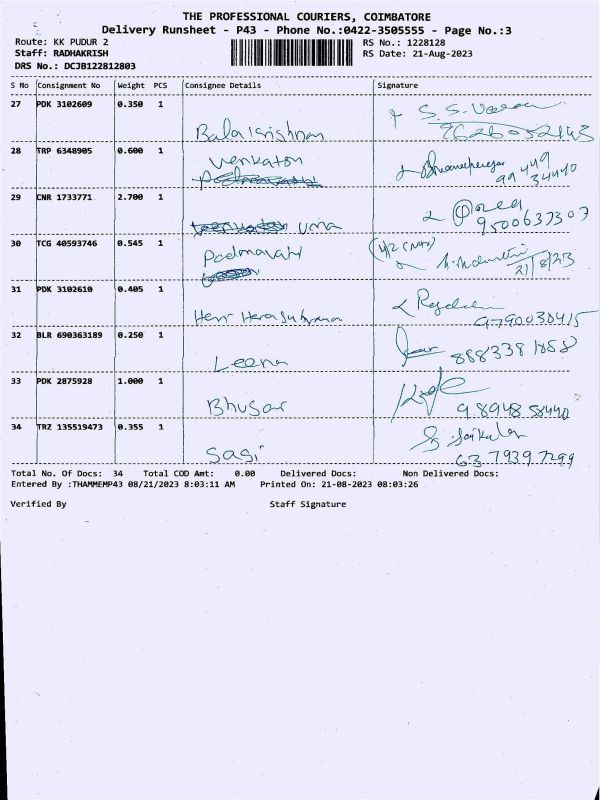 THE PROFESSIONAL COURIERS, COIMBATORE
Delivery Runsheet - P43 - Phone No.:0422-3505555 - Page No.:3
Route: KK PUDUR 2 RS No.: 1228128
Staff: RADHAKRISH RS Date: 21-Aug-2023
DRS No.: DCJB122812803
S No Consignment No Weight PCS Consignee Details Signature
27 PDK 3102609 0.350 1
Balakrishnan 9626052143
28 TRP 6348905 0.600 1
Venkatsn 99449
34440
29 CNR 1733771 2.700 1
Uma 9500637307
30 TCG 40593746 0.545 1
Padmavathi 21/8/23
31 PDK 3102610 0.405 1
9790030415
32 BLR 690363189 0.250 1
Leena 8883381858
33 PDK 2875928 1.000 1
Bhusar 9894858440
34 TRZ 135519473 0.355 1
Sasi 6379397299
Total No. Of Docs: 34 Total COD Amt: 0.00 Delivered Docs: Non Delivered Docs:
Entered By :THAMMEMP43 08/21/2023 8:03:11 AM Printed On: 21-08-2023 08:03:26
Verified By Staff Signature